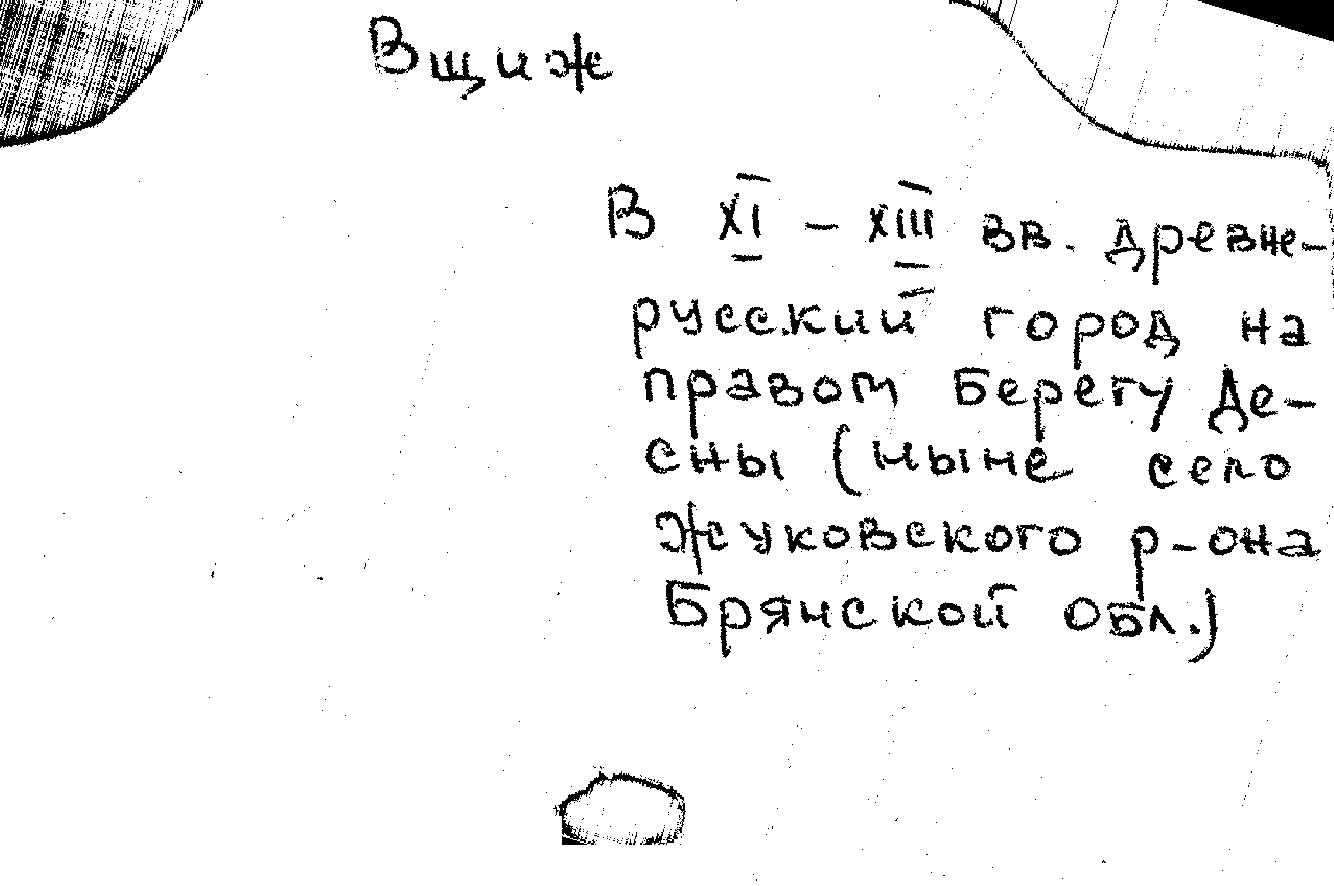 Вщиж
В XI – XIII вв. древне-
русский город на
правом берегу Де-
сны (ныне село
Жуковского р-она
Брянской обл.)